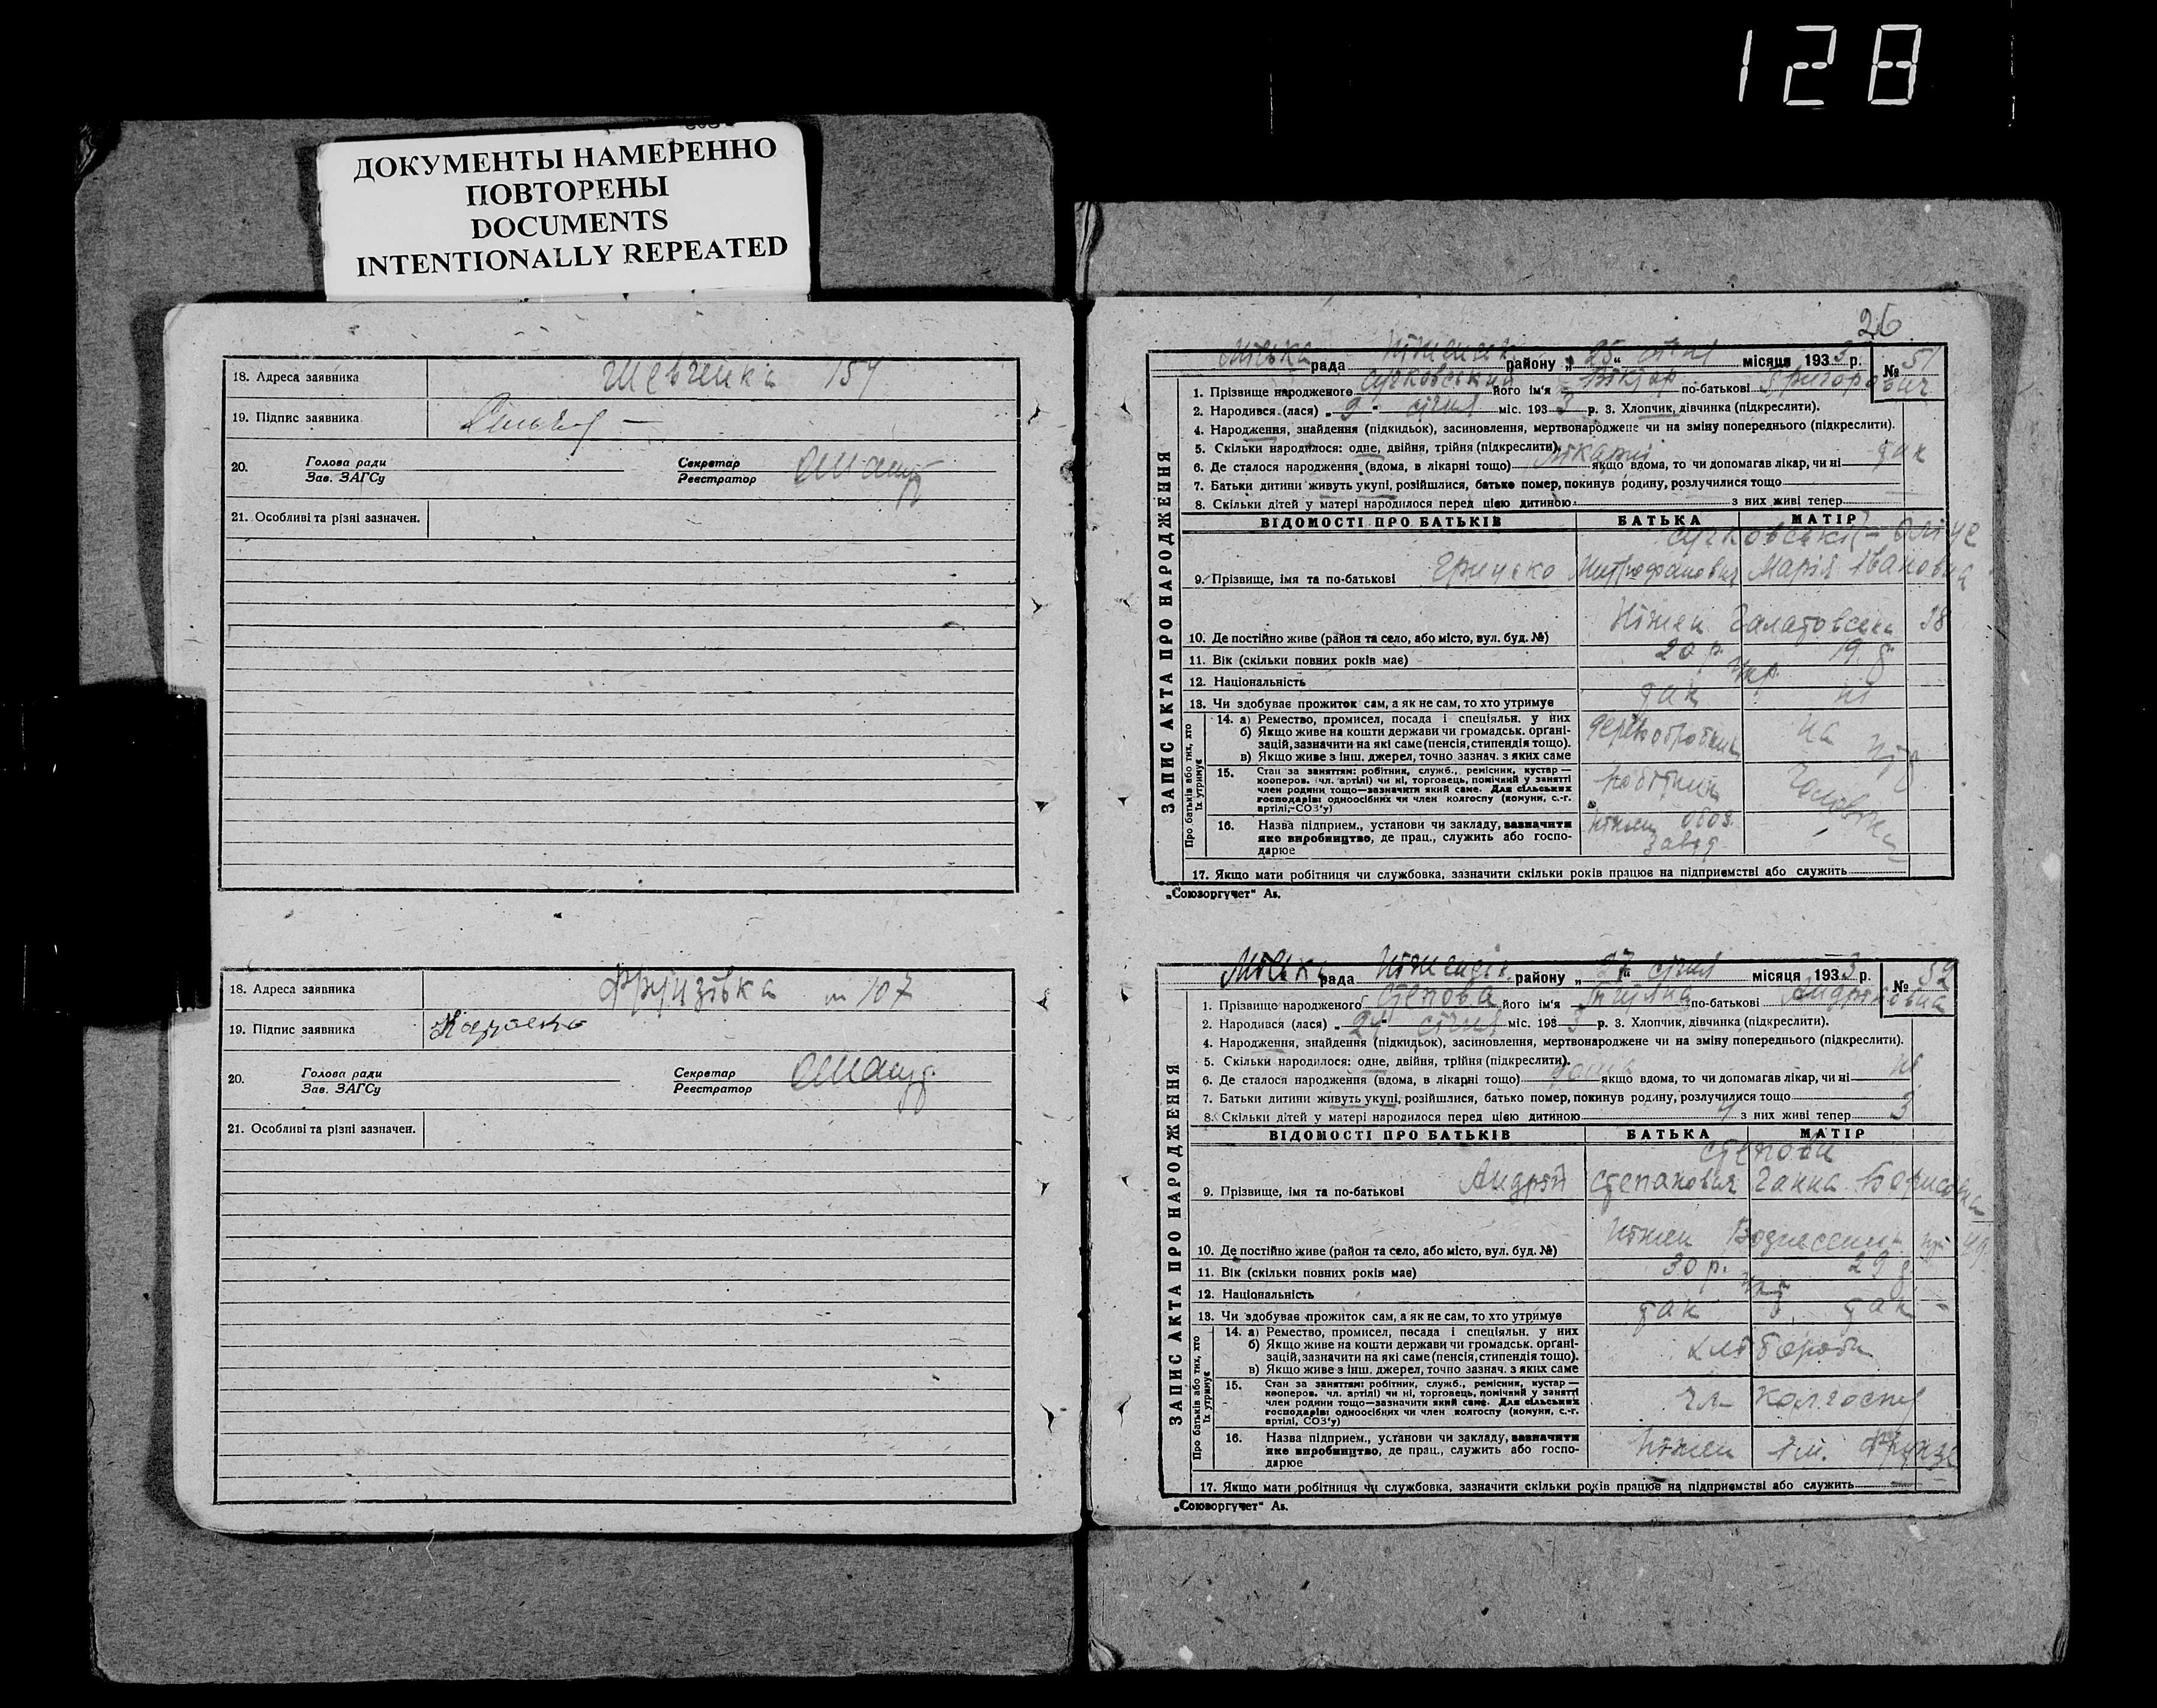 128
ДОКУМЕНТЫ НАМЕРЕННО
ПОВТОРЕНЫ
DOCUMENTS
INTENTIONALLY REPEATED
18. Адреса заявника Шевченка 154
19. Підпис заявника
20. Голова ради Секретар
Зав. ЗАГСу Реєстратор
21. Особливі та різні зазначен.
18. Адреса заявника Фрунзівка 107
19. Підпис заявника
20. Голова ради Секретар
Зав. ЗАГСу Реєстратор
21. Особливі та різні зазначен.
26
ЗАПИС АКТА ПРО НАРОДЖЕННЯ
Міська рада Ніженськ району „25“ січня місяця 1933 р. № 51
1. Прізвище народженого Сучковський його ім'я Віктор по-батькові Григорович
2. Народився (лася) „9“ січня міс. 1933 р. 3. Хлопчик, дівчинка (підкреслити).
4. Народження, знайдення (підкидьок), засиновлення, мертвонароджене чи на зміну попереднього (підкреслити).
5. Скільки народилося: одне, двійня, трійня (підкреслити).
6. Де сталося народження (вдома, в лікарні тощо) лікарні якщо вдома, то чи допомагав лікар, чи ні так
7. Батьки дитини живуть укупі, розійшлися, батько помер, покинув родину, розлучилися тощо
8. Скільки дітей у матері народилося перед цією дитиною з них живі тепер
ВІДОМОСТІ ПРО БАТЬКІВ БАТЬКА МАТІР
Сучковські
9. Прізвище, імя та по-батькові Грицько Митрофанович Марія Івановна
10. Де постійно живе (район та село, або місто, вул. буд. №) Ніжен 38
11. Вік (скільки повних років має) 20 р. 19 р
12. Національність укр.
13. Чи здобуває прожиток сам, а як не сам, то хто утримує так ні
Про батьків або тих, хто їх утримує
14. а) Ремество, промисел, посада і спеціяльн. у них
б) Якщо живе на кошти держави чи громадськ. органі-
зацій, зазначити на які саме (пенсія, стипендія тощо).
в) Якщо живе з інш. джерел, точно зазнач. з яких саме
деревообробник на утр
15. Стан за заняттям: робітник, служб., ремісник, кустар —
кооперов. (чл. артілі) чи ні, торговець, помічний у занятті
член родини тощо—зазначити який саме. Для сільських
господарів: одноосібних чи член колгоспу (комуни, с.-г.
артілі,-СОЗ'у)
робітник чоловіка
16. Назва підприєм., установи чи закладу, зазначити
яке виробництво, де прац., служить або госпо-
дарює
Ніжен обоз.
завод
17. Якщо мати робітниця чи службовка, зазначити скільки років працює на підприємстві або служить
„Союзоргучет“ Ав.
ЗАПИС АКТА ПРО НАРОДЖЕННЯ
Міська рада Ніженськ району „27“ січня місяця 1933 р. № 52
1. Прізвище народженого Степова його ім'я по-батькові Андріївна
2. Народився (лася) „24“ січня міс. 1933 р. 3. Хлопчик, дівчинка (підкреслити).
4. Народження, знайдення (підкидьок), засиновлення, мертвонароджене чи на зміну попереднього (підкреслити).
5. Скільки народилося: одне, двійня, трійня (підкреслити).
6. Де сталося народження (вдома, в лікарні тощо) дома якщо вдома, то чи допомагав лікар, чи ні ні
7. Батьки дитини живуть укупі, розійшлися, батько помер, покинув родину, розлучилися тощо
8. Скільки дітей у матері народилося перед цією дитиною 4 з них живі тепер 3
ВІДОМОСТІ ПРО БАТЬКІВ БАТЬКА МАТІР
Степови
9. Прізвище, імя та по-батькові Андрій Степанович Ганна Борисовна
10. Де постійно живе (район та село, або місто, вул. буд. №) Ніжен
11. Вік (скільки повних років має) 30 р. 29 р
12. Національність укр
13. Чи здобуває прожиток сам, а як не сам, то хто утримує так так
Про батьків або тих, хто їх утримує
14. а) Ремество, промисел, посада і спеціяльн. у них
б) Якщо живе на кошти держави чи громадськ. органі-
зацій, зазначити на які саме (пенсія, стипендія тощо).
в) Якщо живе з інш. джерел, точно зазнач. з яких саме
хлібороби
15. Стан за заняттям: робітник, служб., ремісник, кустар —
кооперов. чл. артілі) чи ні, торговець, помічний у занятті
член родини тощо—зазначити який саме. Для сільських
господарів: одноосібних чи член колгоспу (комуни, с.-г.
артілі, СОЗ'у)
чл колгоспу
16. Назва підприєм., установи чи закладу, зазначити
яке виробництво, де прац., служить або госпо-
дарює
Ніжен ім. Фрунзе
17. Якщо мати робітниця чи службовка, зазначити скільки років працює на підприємстві або служить
„Союзоргучет“ Ав.